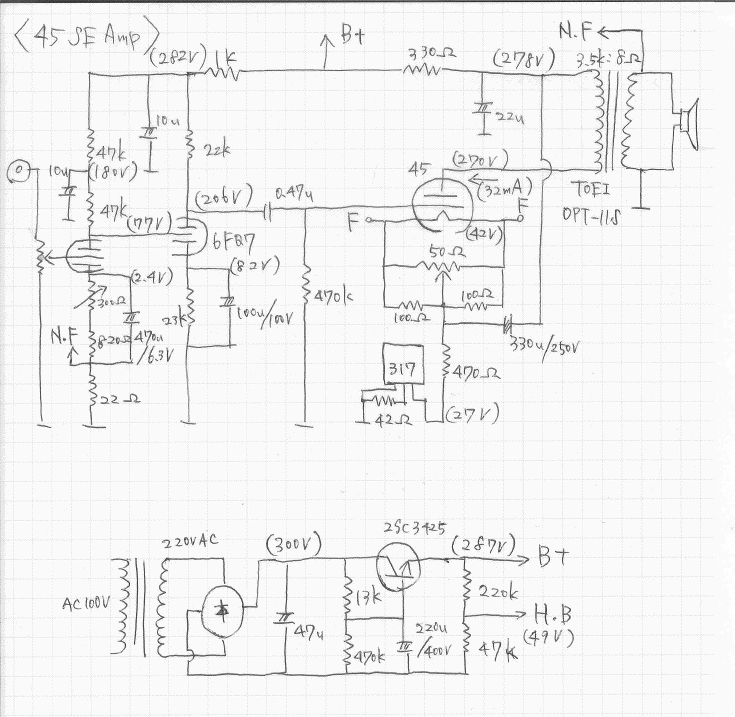 <45 SE Amp>
B+
N.F
(282V) 1k
330Ω
(278V)
3.5k:8Ω
10u
22u
47k
22k
10u
(180V)
45
(270V)
(206V)
0.47u
(32mA)
TOEI
OPT-11S
47k
(77V)
F
F
6FQ7
(42V)
(2.4V)
(82V)
50Ω
300Ω
470k
100Ω
100Ω
23k
100u/100V
N.F
820Ω
470u
/6.3V
330u/250V
317
470Ω
22Ω
42Ω
(27V)
2SC3425
220VAC
(300V)
(287V)
B+
AC100V
13k
220k
H.B
(49V)
47u
220u
/400V
470k
47k